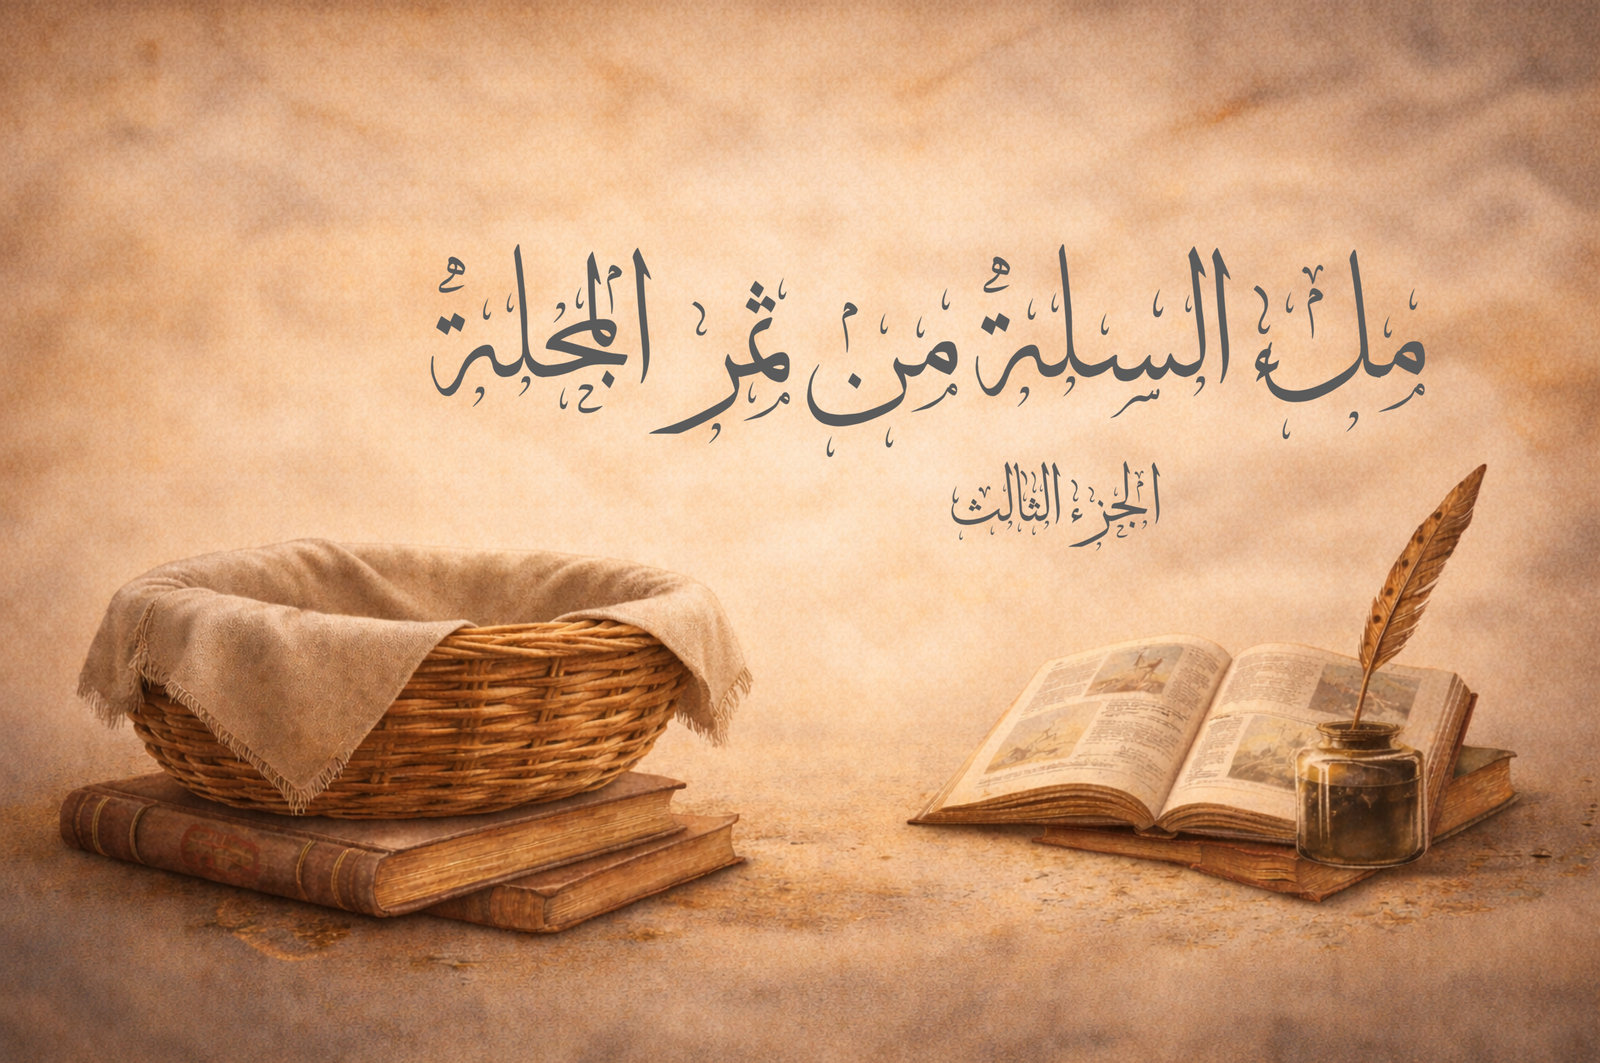 ملء السلة من ثمر المجلة
الجزء الثالث